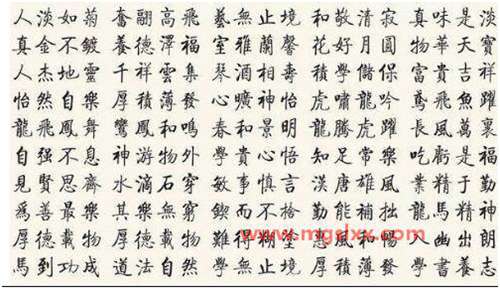 人淡如菊 奮翮高飛 藝無止境 和敬清寂 真味是淡
真金不鍍 養德澤福 室雅蘭馨 花好月圓 物華天寶
人杰地靈 千祥雲集 琴酒相壽 學儲保 富貴吉祥
怡然自樂 厚積薄發 心曠神怡 虎嘯龍吟 鳶飛魚躍
龍飛鳳舞 鸞鳳和鳴 春和景明 龍騰虎躍 長風萬裏
自强不息 神游物外 學貴心悟 知足常樂 吃虧是福
見賢思齊 水滴石穿 敏事慎言 漢唐雄風 業精于勤
爲善最樂 其樂無窮 鍥而不捨 勤能補拙 龍馬精神
厚德載物 厚德載物 難得糊塗 惠風和暢 幽出朗
馬到功成 道法自然 學無止境 厚積薄發 學書養志
www.mgslxx.com